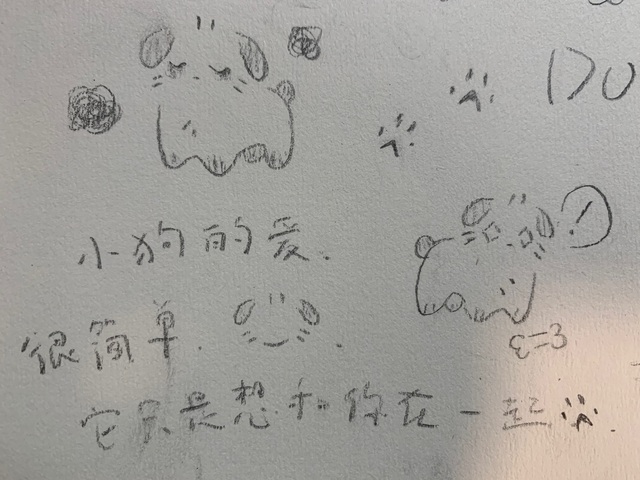 小狗的爱.
很简单.
它只是想和你在一起